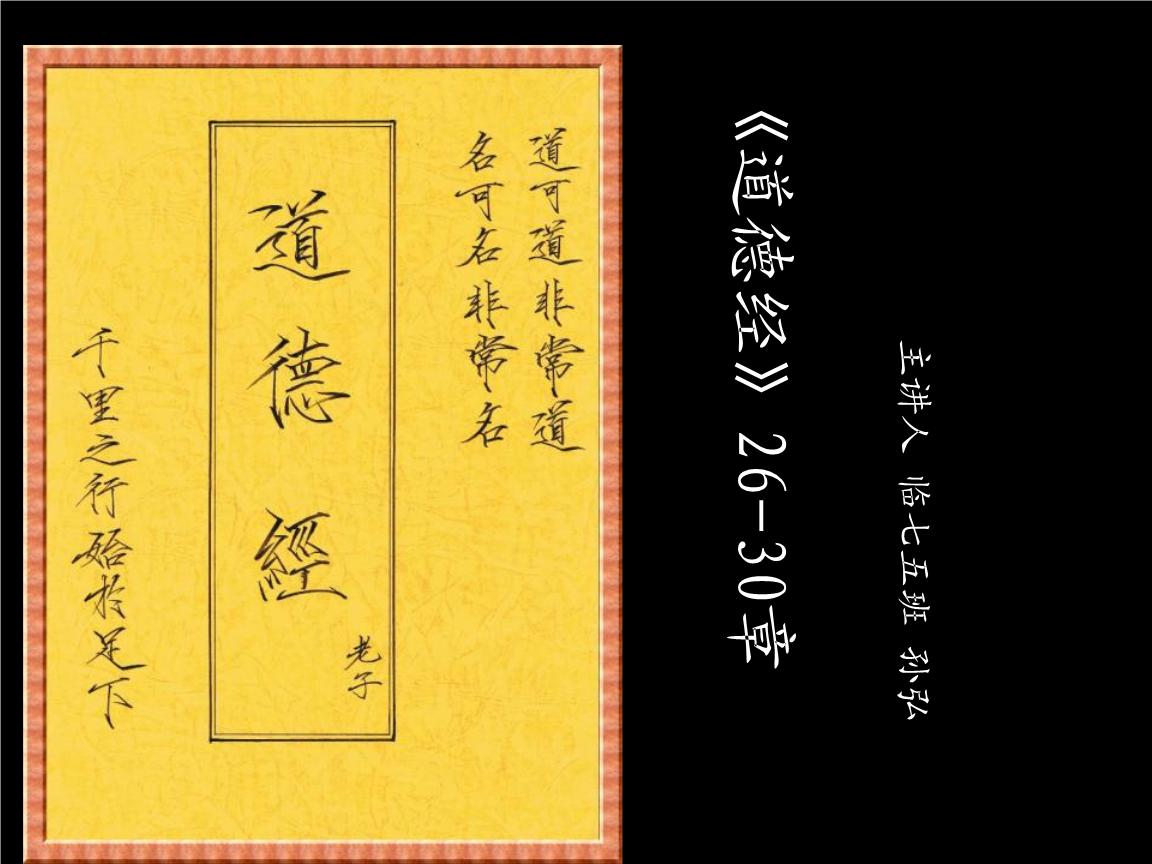 道可道非常道
名可名非常名
道德經
老子
千里之行始於足下
《道德经》26-30章
主讲人 临七五班 孙弘